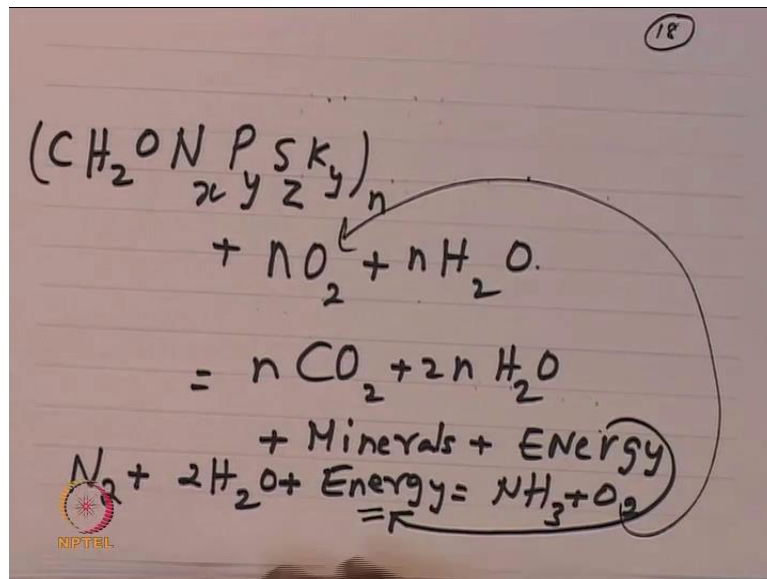 18
(CH₂ONₓPᵧS_zKᵧ)ₙ
+ nO₂ + nH₂O.
= nCO₂ + 2nH₂O
+ Minerals + ENergy
N₂ + 2H₂O + Energy = NH₃ + O₂
NPTEL